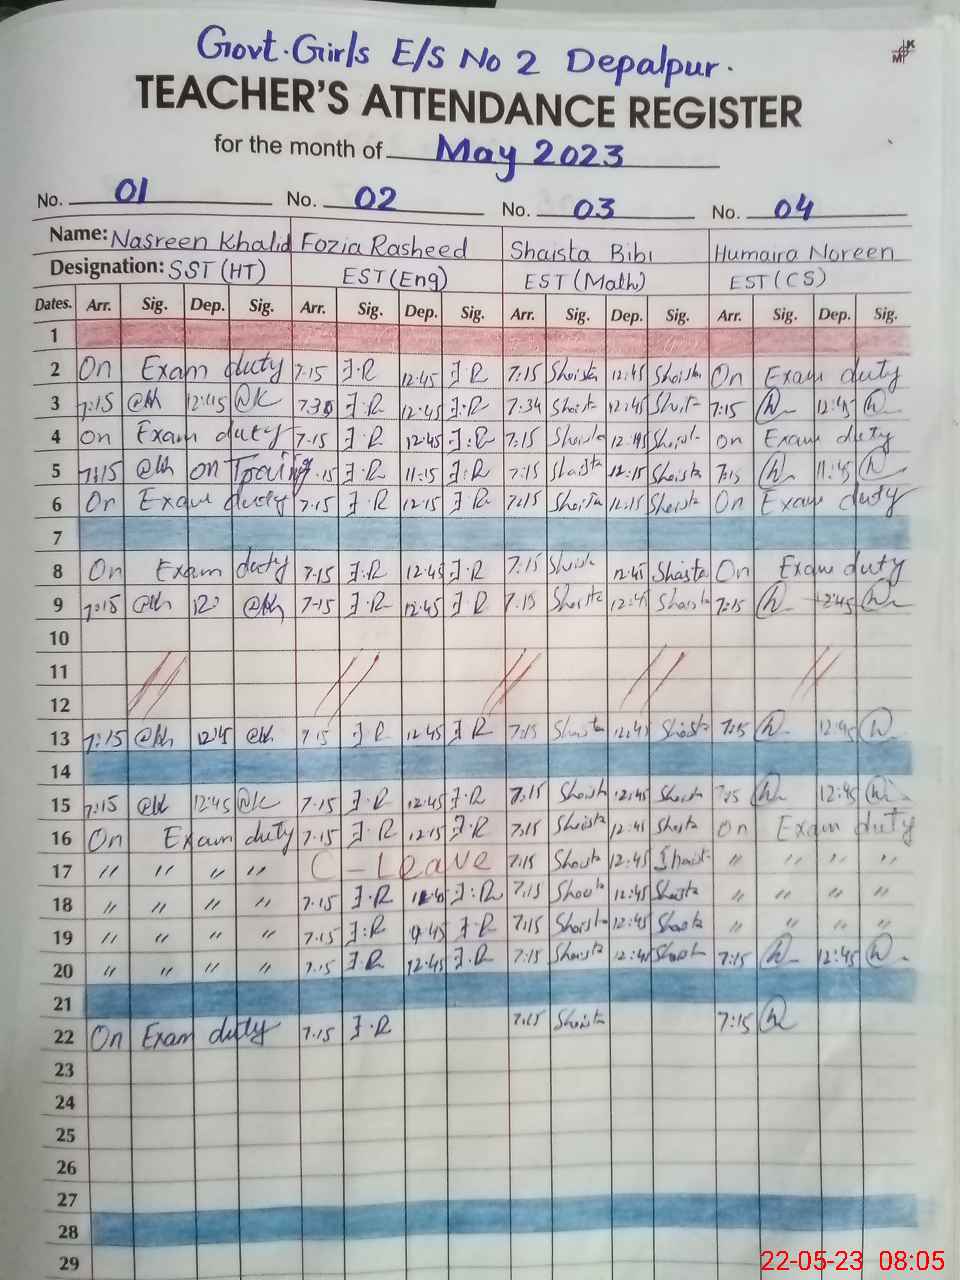 Govt. Girls E/S No 2 Depalpur.
MK
TEACHER'S ATTENDANCE REGISTER
for the month of May 2023
No. 01 No. 02 No. 03 No. 04
Name: Nasreen Khalid Fozia Rasheed Shaista Bibi Humaira Noreen
Designation: SST (HT) EST (Eng) EST (Math) EST (CS)
Dates. Arr. Sig. Dep. Sig. Arr. Sig. Dep. Sig. Arr. Sig. Dep. Sig. Arr. Sig. Dep. Sig.
1
2 On Exam duty 7.15 F.R 12.45 F.R 7:15 Shaista 12:45 Shaista On Exam duty
3 7:15 12:45 F.R 12.45 F.R 7:34 Shaista 12:45 7:15 12:45
4 On Exam duty 7.15 F.R 12.45 F.R 7:15 Shaista 12:45 On Exam duty
5 7:15 on Training 7.15 F.R 11.15 F.R 7:15 Shaista Shaista 7:15 11:45
6 On Exam duty 7.15 F.R 12.15 F.R 7:15 Shaista Shaista On Exam duty
7
8 On Exam duty 7.15 F.R 12.45 F.R 7:15 Shaista 12:45 Shaista On Exam duty
9 7:15 7.15 F.R 12.45 F.R 7.15 Shaista 12:45 Shaista 7:15 12:45
10
11
12
13 7:15 12:45 7.15 F.R 12.45 F.R 7:15 Shaista 12:45 Shaista 7:15 12:45
14
15 7:15 12:45 7.15 F.R 12.45 F.R 7:15 Shaista 12:45 Shaista 7:15 12:45
16 On Exam duty 7.15 F.R 12.15 F.R 7:15 Shaista 12:45 Shaista On Exam duty
17 " " " " C-Leave 7:15 Shaista 12:45 Shaista " " " "
18 " " " " 7.15 F.R F.R 7:15 Shaista 12:45 Shaista " " " "
19 " " " " 7.15 F.R F.R 7:15 Shaista 12:45 Shaista " " " "
20 " " " " 7.15 F.R 12.45 F.R 7:15 Shaista 12:45 Shaista 7:15 12:45
21
22 On Exam duty 7.15 F.R 7:15 Shaista 7:15
23
24
25
26
27
28
29
22-05-23 08:05